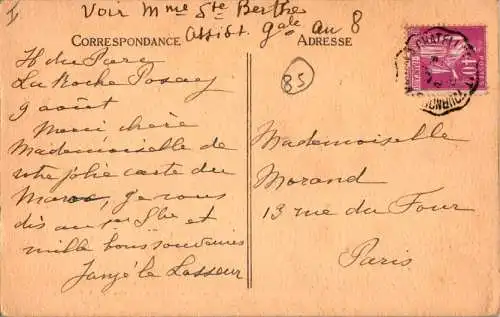 Voir Mme Ste Berthe
assist gale au 8
CORRESPONDANCE
ADRESSE
85
H du Parc
La Roche Posay
9 août
Merci chère
Mademoiselle de
votre jolie carte du
Maroc, je vous
dis au 1er 7bre et
mille bons souvenirs
Mademoiselle
Morand
13 rue du Four
Paris